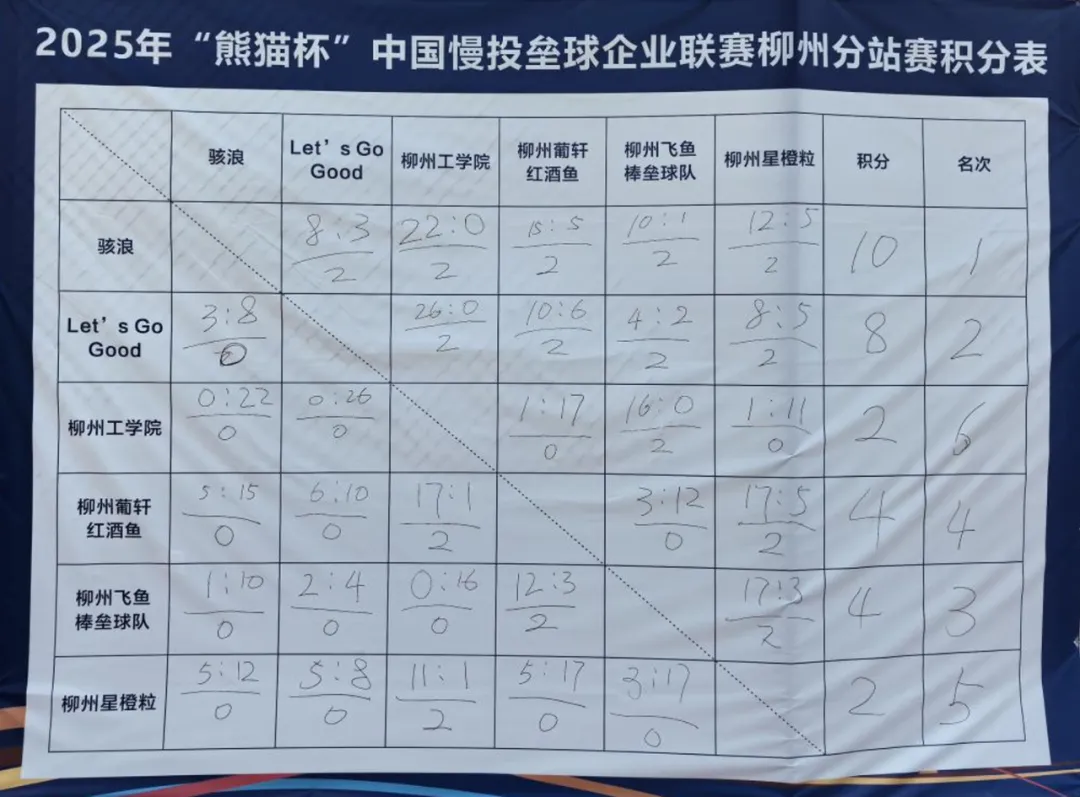 2025年“熊猫杯”中国慢投垒球企业联赛柳州分站赛积分表
骇浪 Let’s Go Good 柳州工学院 柳州葡轩红酒鱼 柳州飞鱼棒垒球队 柳州星橙粒 积分 名次
骇浪 8:3 2 22:0 2 15:5 2 10:1 2 12:5 2 10 1
Let’s Go Good 3:8 0 26:0 2 10:6 2 4:2 2 8:5 2 8 2
柳州工学院 0:22 0 0:26 0 1:17 0 16:0 2 1:11 0 2 6
柳州葡轩红酒鱼 5:15 0 6:10 0 17:1 2 3:12 0 17:5 2 4 4
柳州飞鱼棒垒球队 1:10 0 2:4 0 0:16 0 12:3 2 17:3 2 4 3
柳州星橙粒 5:12 0 5:8 0 11:1 2 5:17 0 3:17 0 2 5